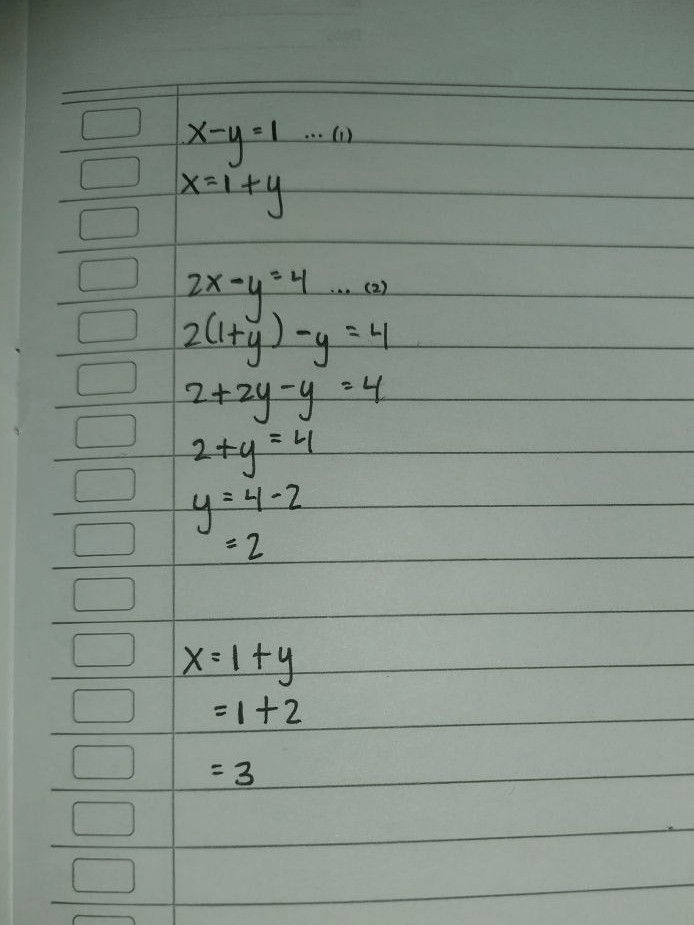 x-y=1 ... (1)
x=1+y
2x-y=4 ... (2)
2(1+y)-y=4
2+2y-y=4
2+y=4
y=4-2
=2
x=1+y
=1+2
=3